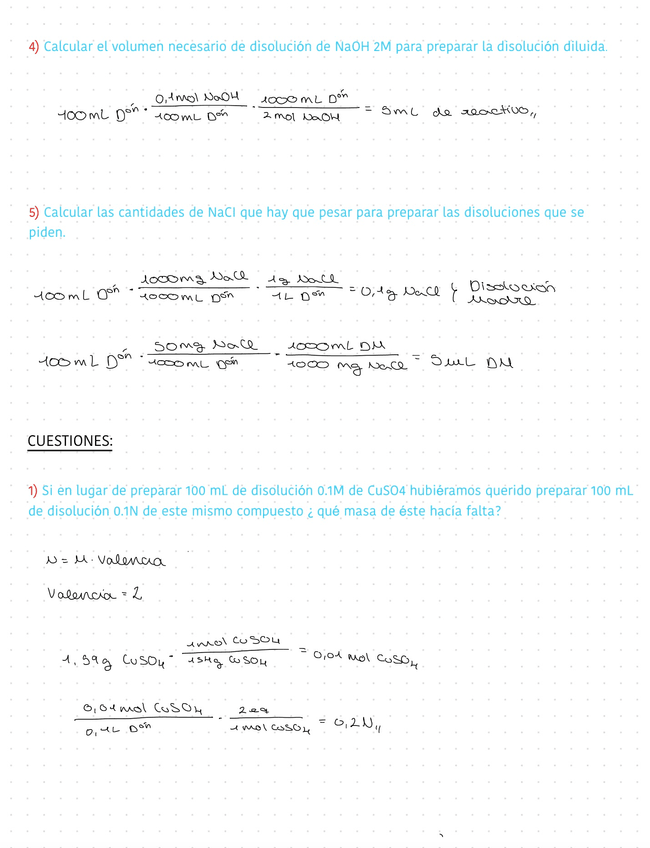 4) Calcular el volumen necesario de disolución de NaOH 2M para preparar la disolución diluida.
100mL Dᵒⁿ · 0,1mol NaOH / 100mL Dᵒⁿ · 1000mL Dᵒⁿ / 2mol NaOH = 5mL de reactivo,,
5) Calcular las cantidades de NaCl que hay que pesar para preparar las disoluciones que se
piden.
100mL Dᵒⁿ · 1000mg NaCl / 1000mL Dᵒⁿ · 1g NaCl / 1L Dᵒⁿ = 0,1g NaCl } Disolución Madre
100mL Dᵒⁿ · 50mg NaCl / 1000mL Dᵒⁿ · 1000mL DM / 1000 mg NaCl = 5mL DM
CUESTIONES:
1) Si en lugar de preparar 100 mL de disolución 0.1M de CuSO4 hubiéramos querido preparar 100 mL
de disolución 0.1N de este mismo compuesto ¿ qué masa de éste hacía falta?
N = M · Valencia
Valencia = 2
1.59g CuSO₄ · 1mol CuSO₄ / 159g CuSO₄ = 0,01 mol CuSO₄
0,01mol CuSO₄ / 0,1L Dᵒⁿ · 2eq / 1mol CuSO₄ = 0,2N,,